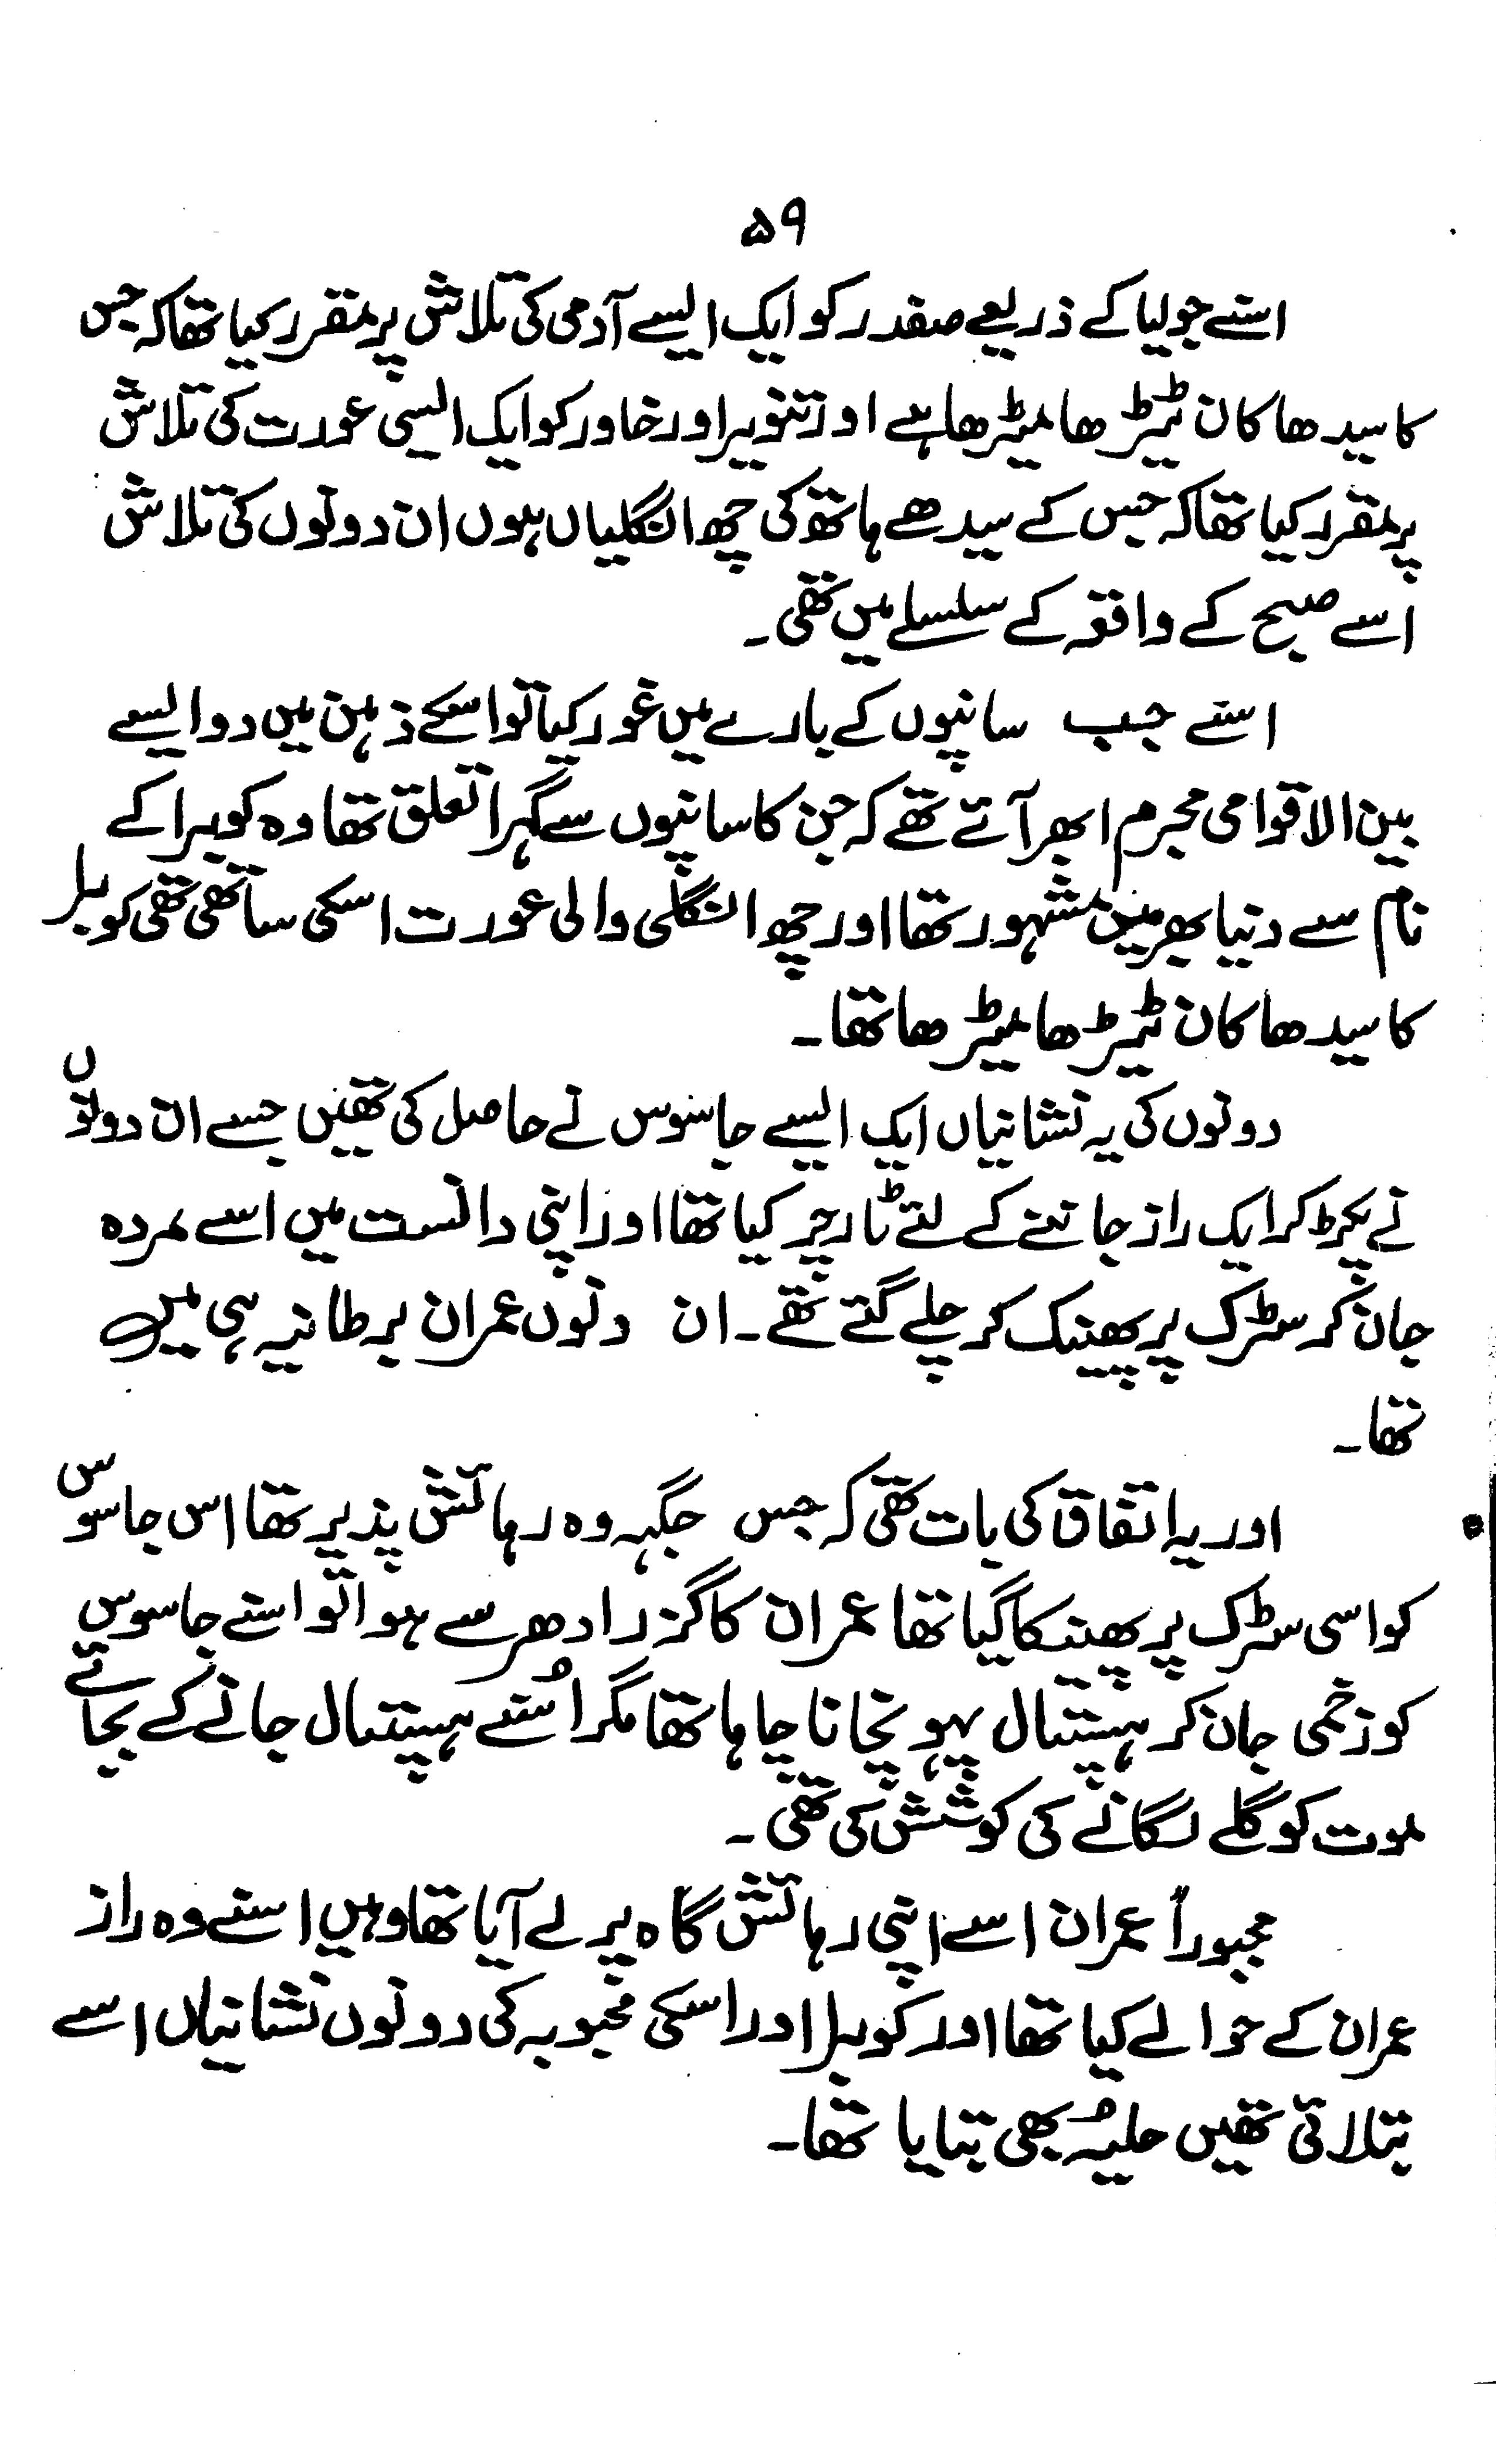 ۵۹
اسنے جولیا کے ذریعے صفدر کو ایک ایسے آدمی کی تلاش پر مقرر کیا تھا کہ جس
کا سیدھا کان ٹیڑھا میڑھا ہے اور تنویر اور خاور کو ایک ایسی عورت کی تلاش
پر مقرر کیا تھا کہ جس کے سیدھے ہاتھ کی چھ انگلیاں ہوں ان دونوں کی تلاش
اسے صبح کے واقعہ کے سلسلے میں تھی۔
اسنے جب سانپوں کے بارے میں غور کیا تو اسکے ذہن میں دو ایسے
بین الاقوامی مجرم ابھر آئے تھے کہ جن کا سانپوں سے گہرا تعلق تھا وہ کوبرا کے
نام سے دنیا بھر میں مشہور تھا اور چھ انگلی والی عورت اسکی ساتھی تھی کوبرا
کا سیدھا کان ٹیڑھا میڑھا تھا۔
دونوں کی یہ نشانیاں ایک ایسے جاسوس نے حاصل کی تھیں جسے ان دونوں
نے پکڑ کر ایک راز جاننے کے لئے ٹارچر کیا تھا اور اپنی دانست میں اسے مردہ
جان کر سڑک پر پھینک کر چلے گئے تھے۔ ان دنوں عمران برطانیہ ہی میں
تھا۔
اور یہ اتفاق کی بات تھی کہ جس جگہہ وہ رہائش پذیر تھا اس جاسوس
کو اسی سڑک پر پھینکا گیا تھا عمران کا گزر ادھر سے ہوا تو اسنے جاسوس
کو زخمی جان کر ہسپتال پہونچانا چاہا تھا مگر اُسنے ہسپتال جانے کے بجائے
موت کو گلے لگانے کی کوشش کی تھی۔
مجبوراً عمران اسے اپنی رہائش گاہ پر لے آیا تھا وہیں اسنے وہ راز
عمران کے حوالے کیا تھا اور کوبرا اور اسکی محبوبہ کی دونوں نشانیاں اسے
بتلائی تھیں حلیہ بھی بتایا تھا۔